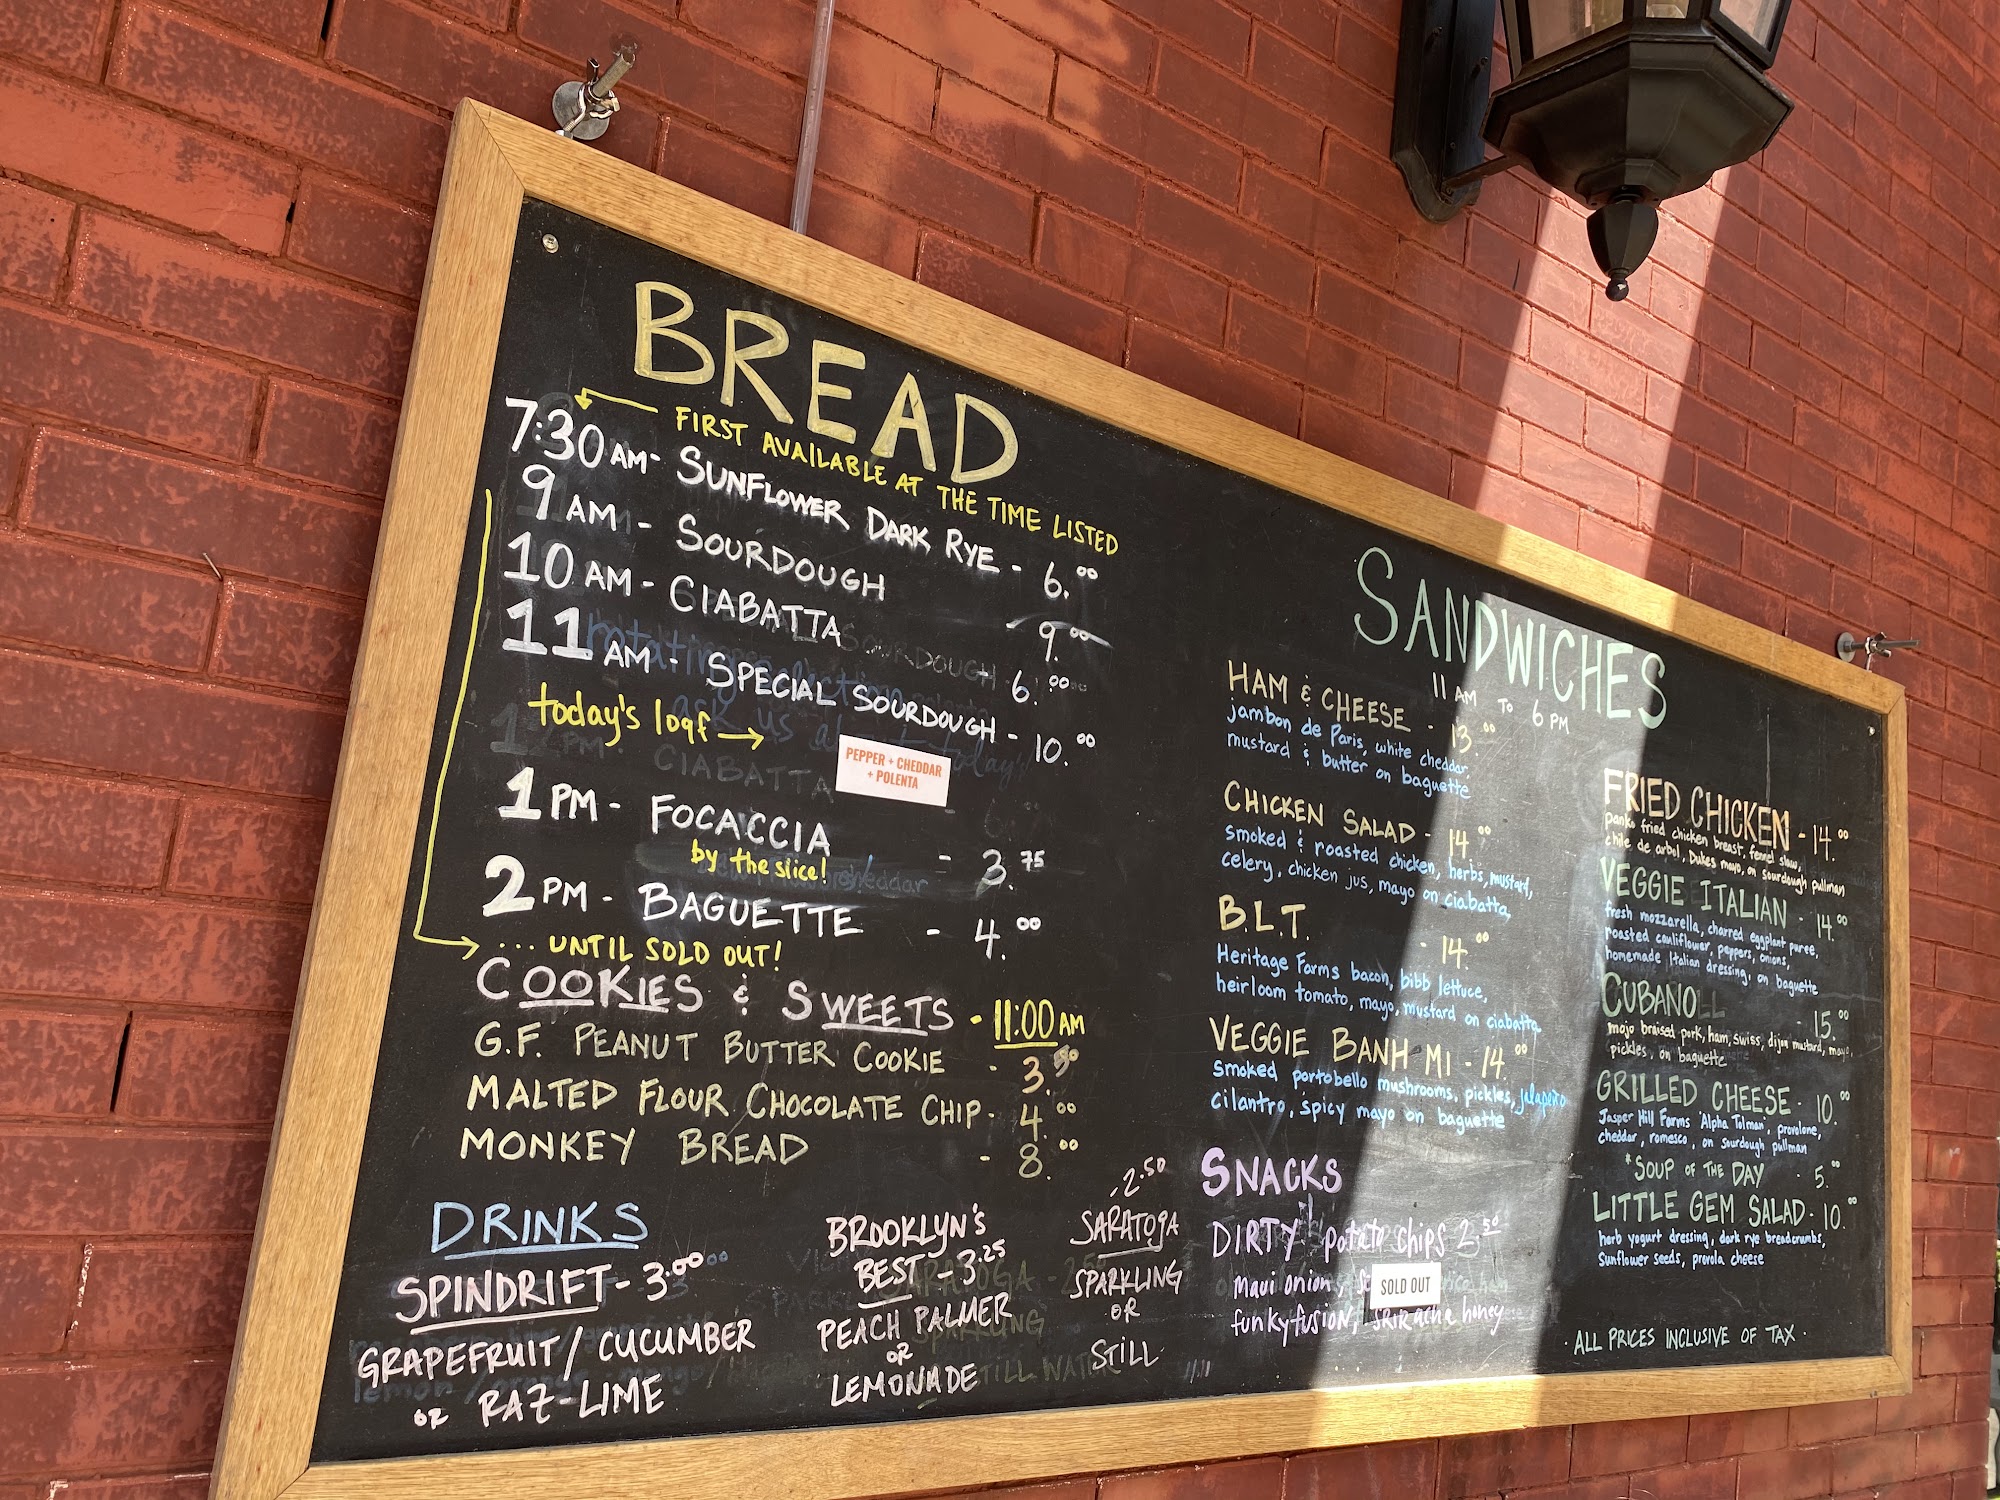 BREAD
FIRST AVAILABLE AT THE TIME LISTED
7:30 AM - SUNFLOWER DARK RYE - 6.00
9 AM - SOURDOUGH - 9.00
10 AM - CIABATTA - 6.00
11 AM - SPECIAL SOURDOUGH - 10.00
today's loaf →
PEPPER + CHEDDAR
+ POLENTA
1 PM - FOCACCIA - 3.75
by the slice!
2 PM - BAGUETTE - 4.00
... UNTIL SOLD OUT!
COOKIES & SWEETS - 11:00 AM
G.F. PEANUT BUTTER COOKIE - 3.50
MALTED FLOUR CHOCOLATE CHIP - 4.00
MONKEY BREAD - 8.00
DRINKS
SPINDRIFT - 3.00
GRAPEFRUIT / CUCUMBER
OR RAZ-LIME
BROOKLYN'S
BEST - 3.25
PEACH PALMER
OR
LEMONADE
- 2.50
SARATOGA
SPARKLING
OR
STILL
SANDWICHES
11 AM TO 6 PM
HAM & CHEESE - 13.00
jambon de Paris, white cheddar,
mustard & butter on baguette
CHICKEN SALAD - 14.00
smoked & roasted chicken, herbs, mustard,
celery, chicken jus, mayo on ciabatta
B.L.T. - 14.00
Heritage Farms bacon, bibb lettuce,
heirloom tomato, mayo, mustard on ciabatta
VEGGIE BANH MI - 14.00
smoked portobello mushrooms, pickles, jalapeño
cilantro, spicy mayo on baguette
SNACKS
DIRTY potato chips 2.50
maui onion,
SOLD OUT
funky fusion, sriracha honey
FRIED CHICKEN - 14.00
panko fried chicken breast, fennel slaw,
chile de arbol, Dukes mayo, on sourdough pullman
VEGGIE ITALIAN - 14.00
fresh mozzarella, charred eggplant puree,
roasted cauliflower, peppers, onions,
homemade Italian dressing, on baguette
CUBANO - 15.00
mojo braised pork, ham, swiss, dijon mustard, mayo,
pickles, on baguette
GRILLED CHEESE - 10.00
Jasper Hill Farms 'Alpha Tolman', provolone,
cheddar, romesco, on sourdough pullman
*SOUP OF THE DAY - 5.00
LITTLE GEM SALAD - 10.00
herb yogurt dressing, dark rye breadcrumbs,
sunflower seeds, provola cheese
· ALL PRICES INCLUSIVE OF TAX ·